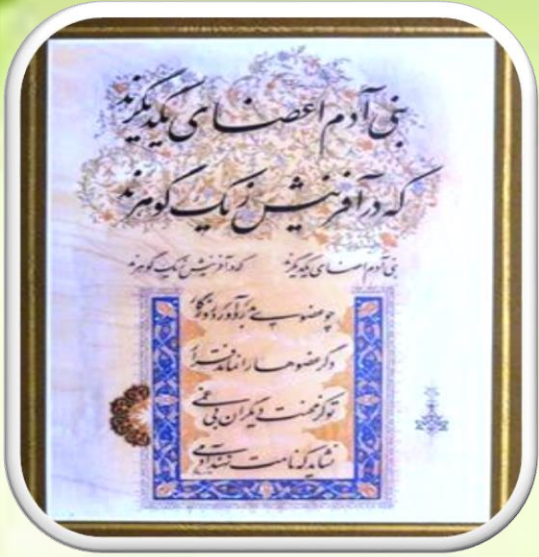 بنی آدم اعضای یکدیگرند
که در آفرینش ز یک گوهرند
بنی آدم اعضای یکدیگرند که در آفرینش ز یک گوهرند
چو عضوی به درد آورد روزگار
دگر عضوها را نماند قرار
تو کز محنت دیگران بی غمی
نشاید که نامت نهند آدمی